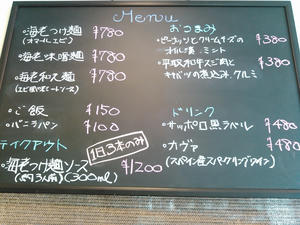 Menu
・海老つけ麺 ¥780
(オマールエビ)
・海老味噌麺 ¥780
・海老和え麺 ¥780
・ご飯 ¥150
・バニラパン ¥100
テイクアウト
1日3本のみ
・海老つけ麺ソース ¥1,200
(約3人前)(300ml)
おつまみ
・ピーナッツとクリームチーズの ¥380
オルバ漬、ミント
・平取和牛スジ肉と ¥380
キャベツの煮込み、クルミ
ドリンク
・サッポロ黒ラベル ¥480
・カヴァ ¥480
(スペイン産スパークリングワイン)